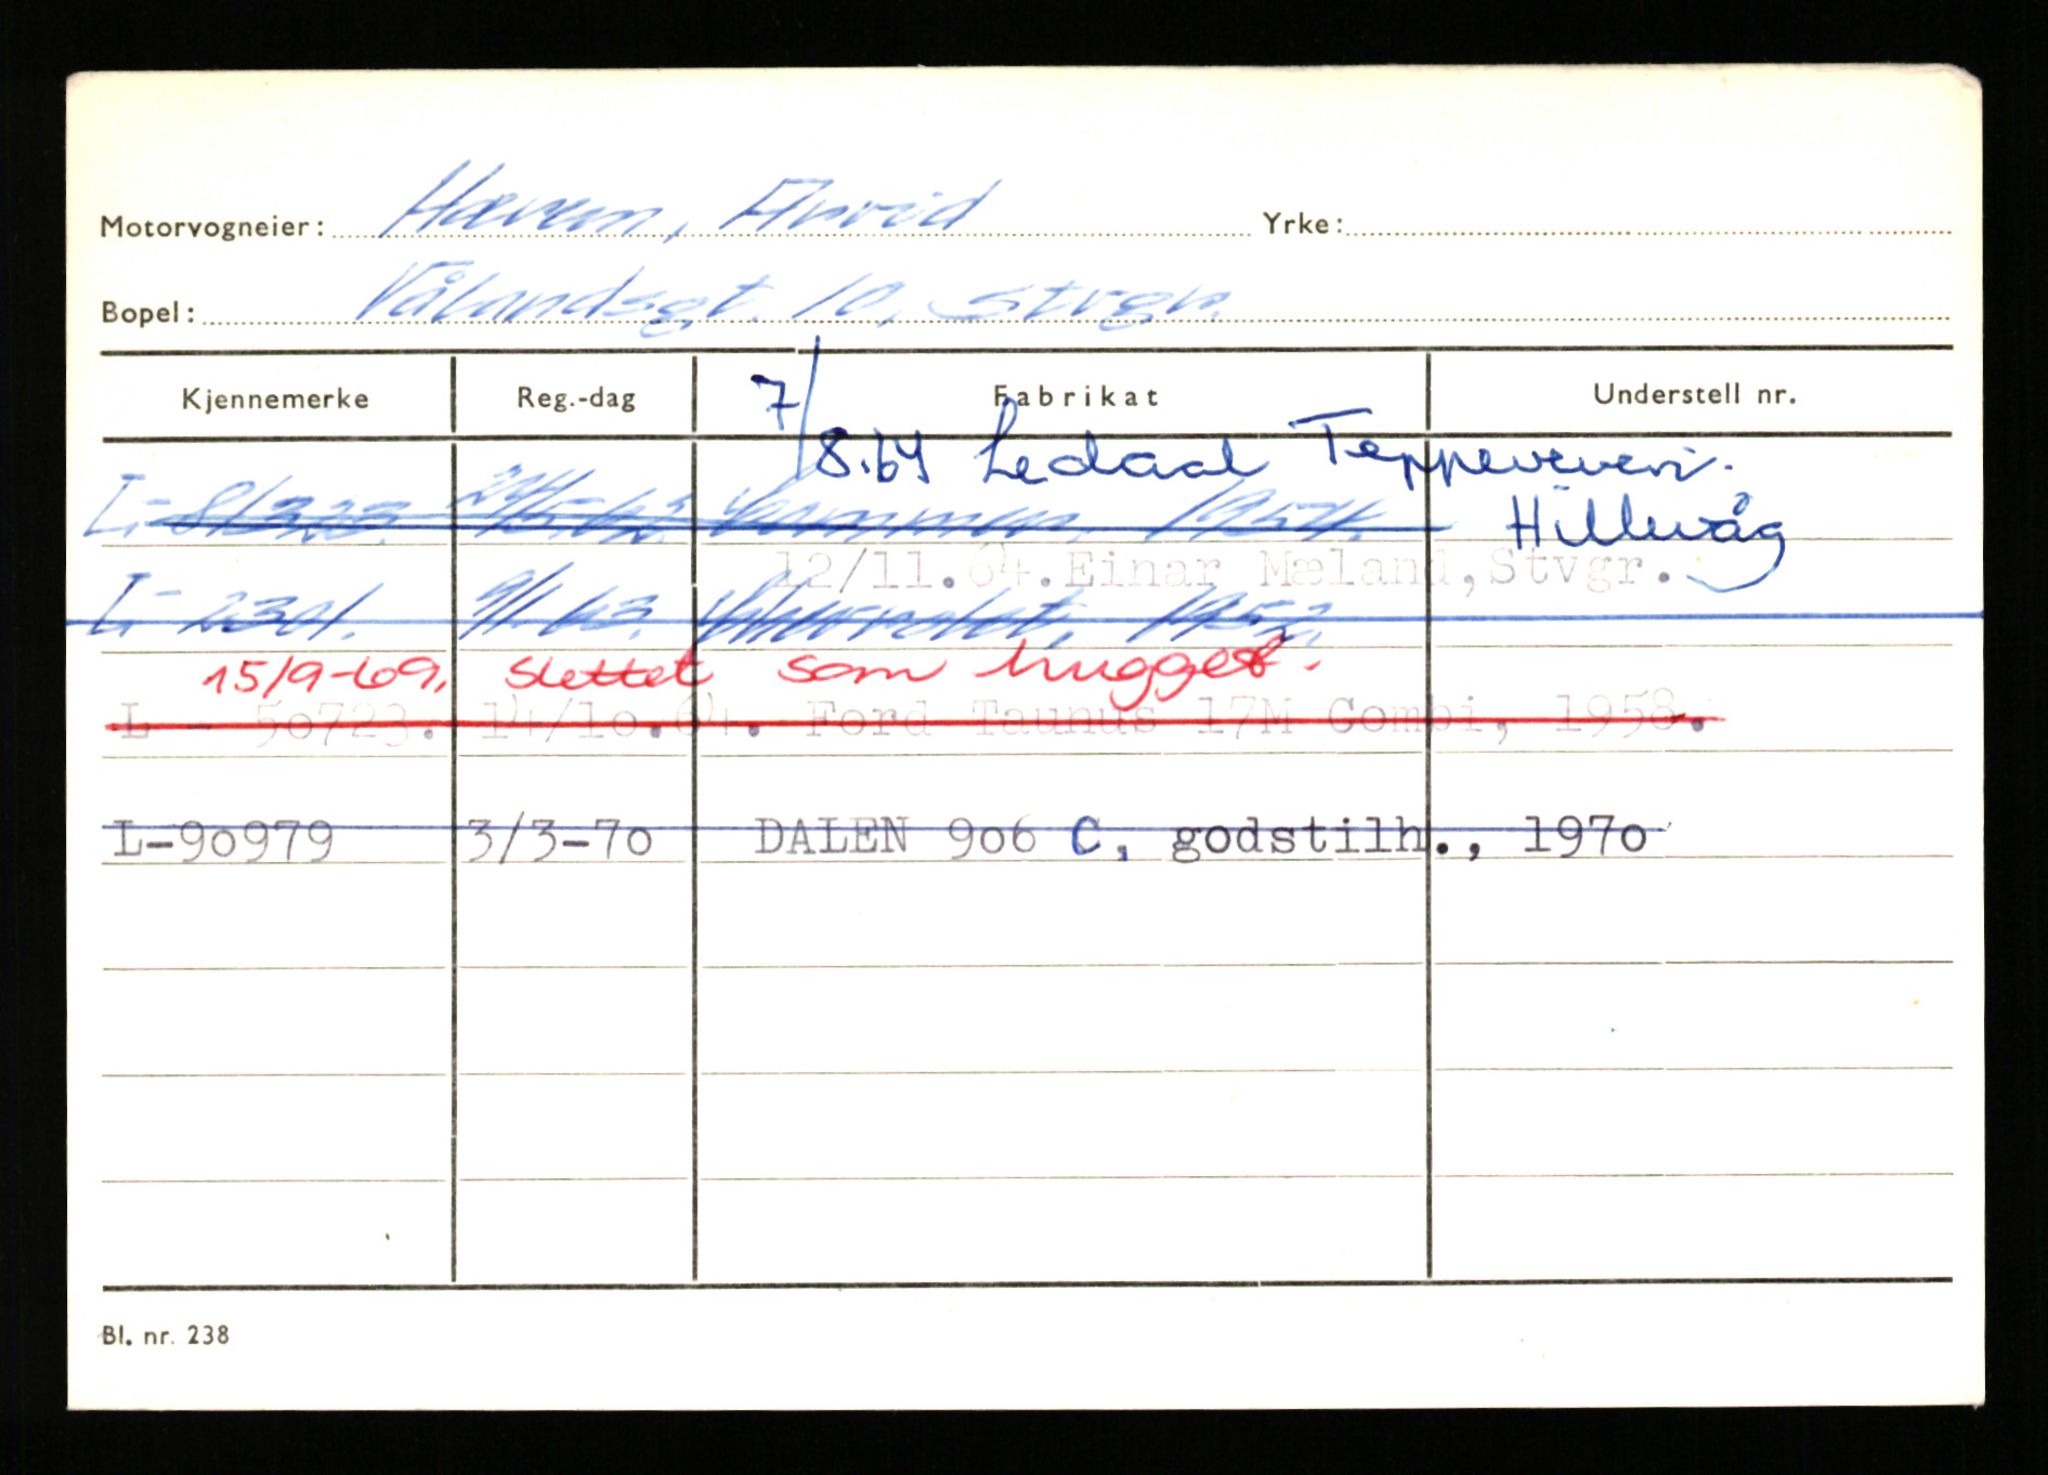 Motorvogneier: Hævem, Arvid Yrke:
Bopel: Vålandsgt. 10, Stvgr.
Kjennemerke Reg.-dag Fabrikat Understell nr.
7/8.64 Ledaal Teppeveveri.
L- 1954. Hillevåg
12/11.64. Einar Mæland, Stvgr.
L- 2301. 9/1-63. Chevrolet, 1952.
15/9-69. Slettet som hugget.
L - 50723. 14/10.64. Ford Taunus 17M Combi, 1958.
L-90979 3/3-70 DALEN 906 C, godstilh., 1970
Bl. nr. 238